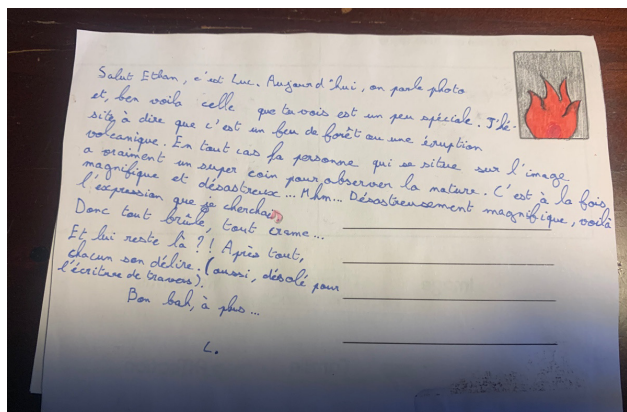 Salut Ethan, c'est Luc. Aujourd'hui, on parle photo
et, ben voilà celle que tu vois est un peu spéciale. J'hé-
site à dire que c'est un feu de forêt ou une éruption
volcanique. En tout cas la personne qui se situe sur l'image
a vraiment un super coin pour observer la nature. C'est à la fois
magnifique et désastreux... Mhm... Désastreusement magnifique, voilà
l'expression que je cherchais
Donc tout brûle, tout crame...
Et lui reste là ?! Après tout,
chacun son délire. (aussi, désolé pour
l'écriture de travers).
Bon bah, à plus...
L.